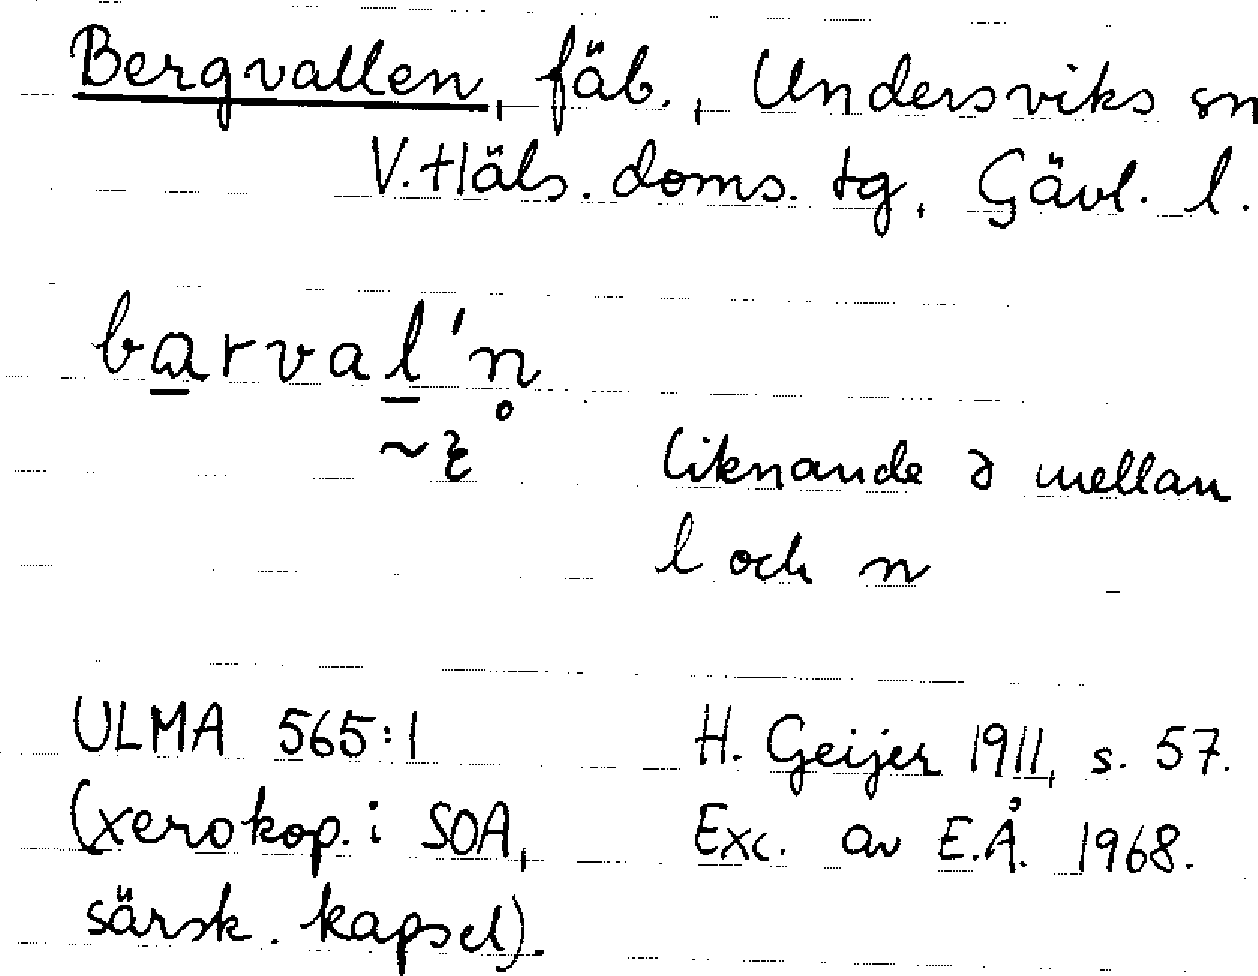 Bergvallen, fäb., Undersviks sn
V. Häls. doms. tg, Gävl. l.
barval'n̥
~ ꜫ
liknande ə mellan
l och n
ULMA 565:1 H. Geijer 1911, s. 57.
(xerokop. i SOA, Exc. av E.Å. 1968.
särsk. kapsel).